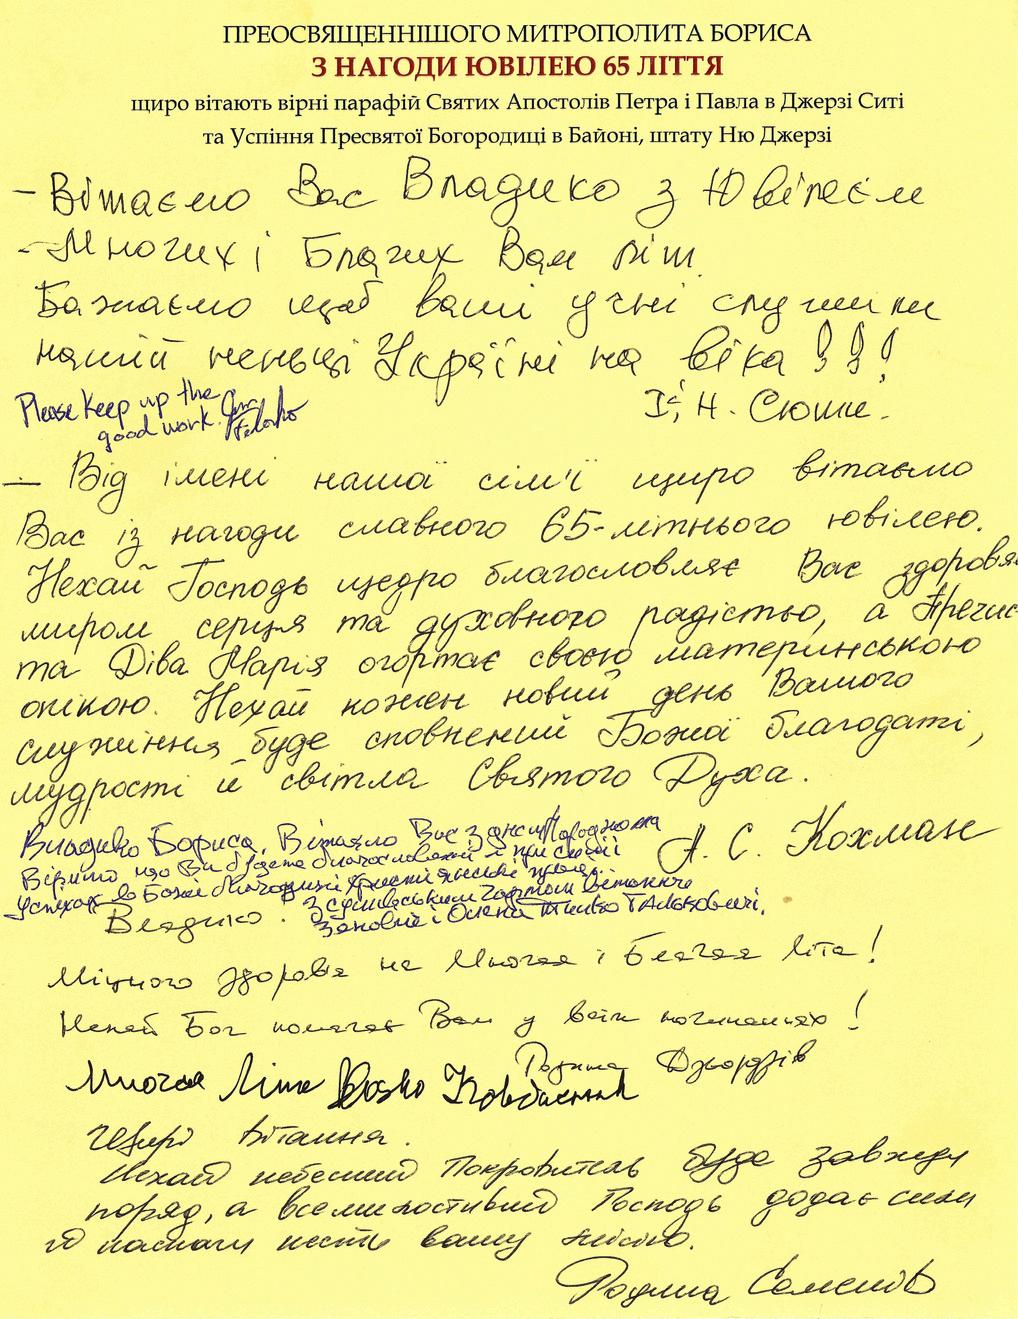 ПРЕОСВЯЩЕННІШОГО МИТРОПОЛИТА БОРИСА
З НАГОДИ ЮВІЛЕЮ 65 ЛІТТЯ
щиро вітають вірні парафій Святих Апостолів Петра і Павла в Джерзі Ситі
та Успіння Пресвятої Богородиці в Байоні, штату Ню Джерзі
- Вітаємо Вас Владико з Ювілеєм
- Многих і Благих Вам літ.
Бажаємо щоб ваші учні служили
нашій неньці Україні на віка !!!
Please keep up the
good work.
І. Н. Сюти.
— Від імені нашої сім'ї щиро вітаємо
Вас із нагоди славного 65-літнього ювілею.
Нехай Господь щедро благословляє Вас здоровям
миром серця та духовного радістью, а Пречис
та Діва Марія огортає своєю материнською
опікою. Нехай кожен новий день Вашого
служіння буде сповнений Божої благодаті,
мудрості й світла Святого Духа.
А. С. Кохман
Владико Бориса, Вітаємо Вас з днем Народження
Віримо що Ви будете благословенні і при силі
Успіхов в Божі
Владико.
Зеновій і Олена
Міцного здоровя на Многая і Благая Літа!
Нехай Бог помагає Вам у всіх починаннях!
Родина Дзьордзів
Многая Літа
Щирі вітання.
Нехай небесний Покровитель буде завжди
поряд, а всемилостивий Господь додає сили
й наснаги нести вашу місію.
Родина Семенів